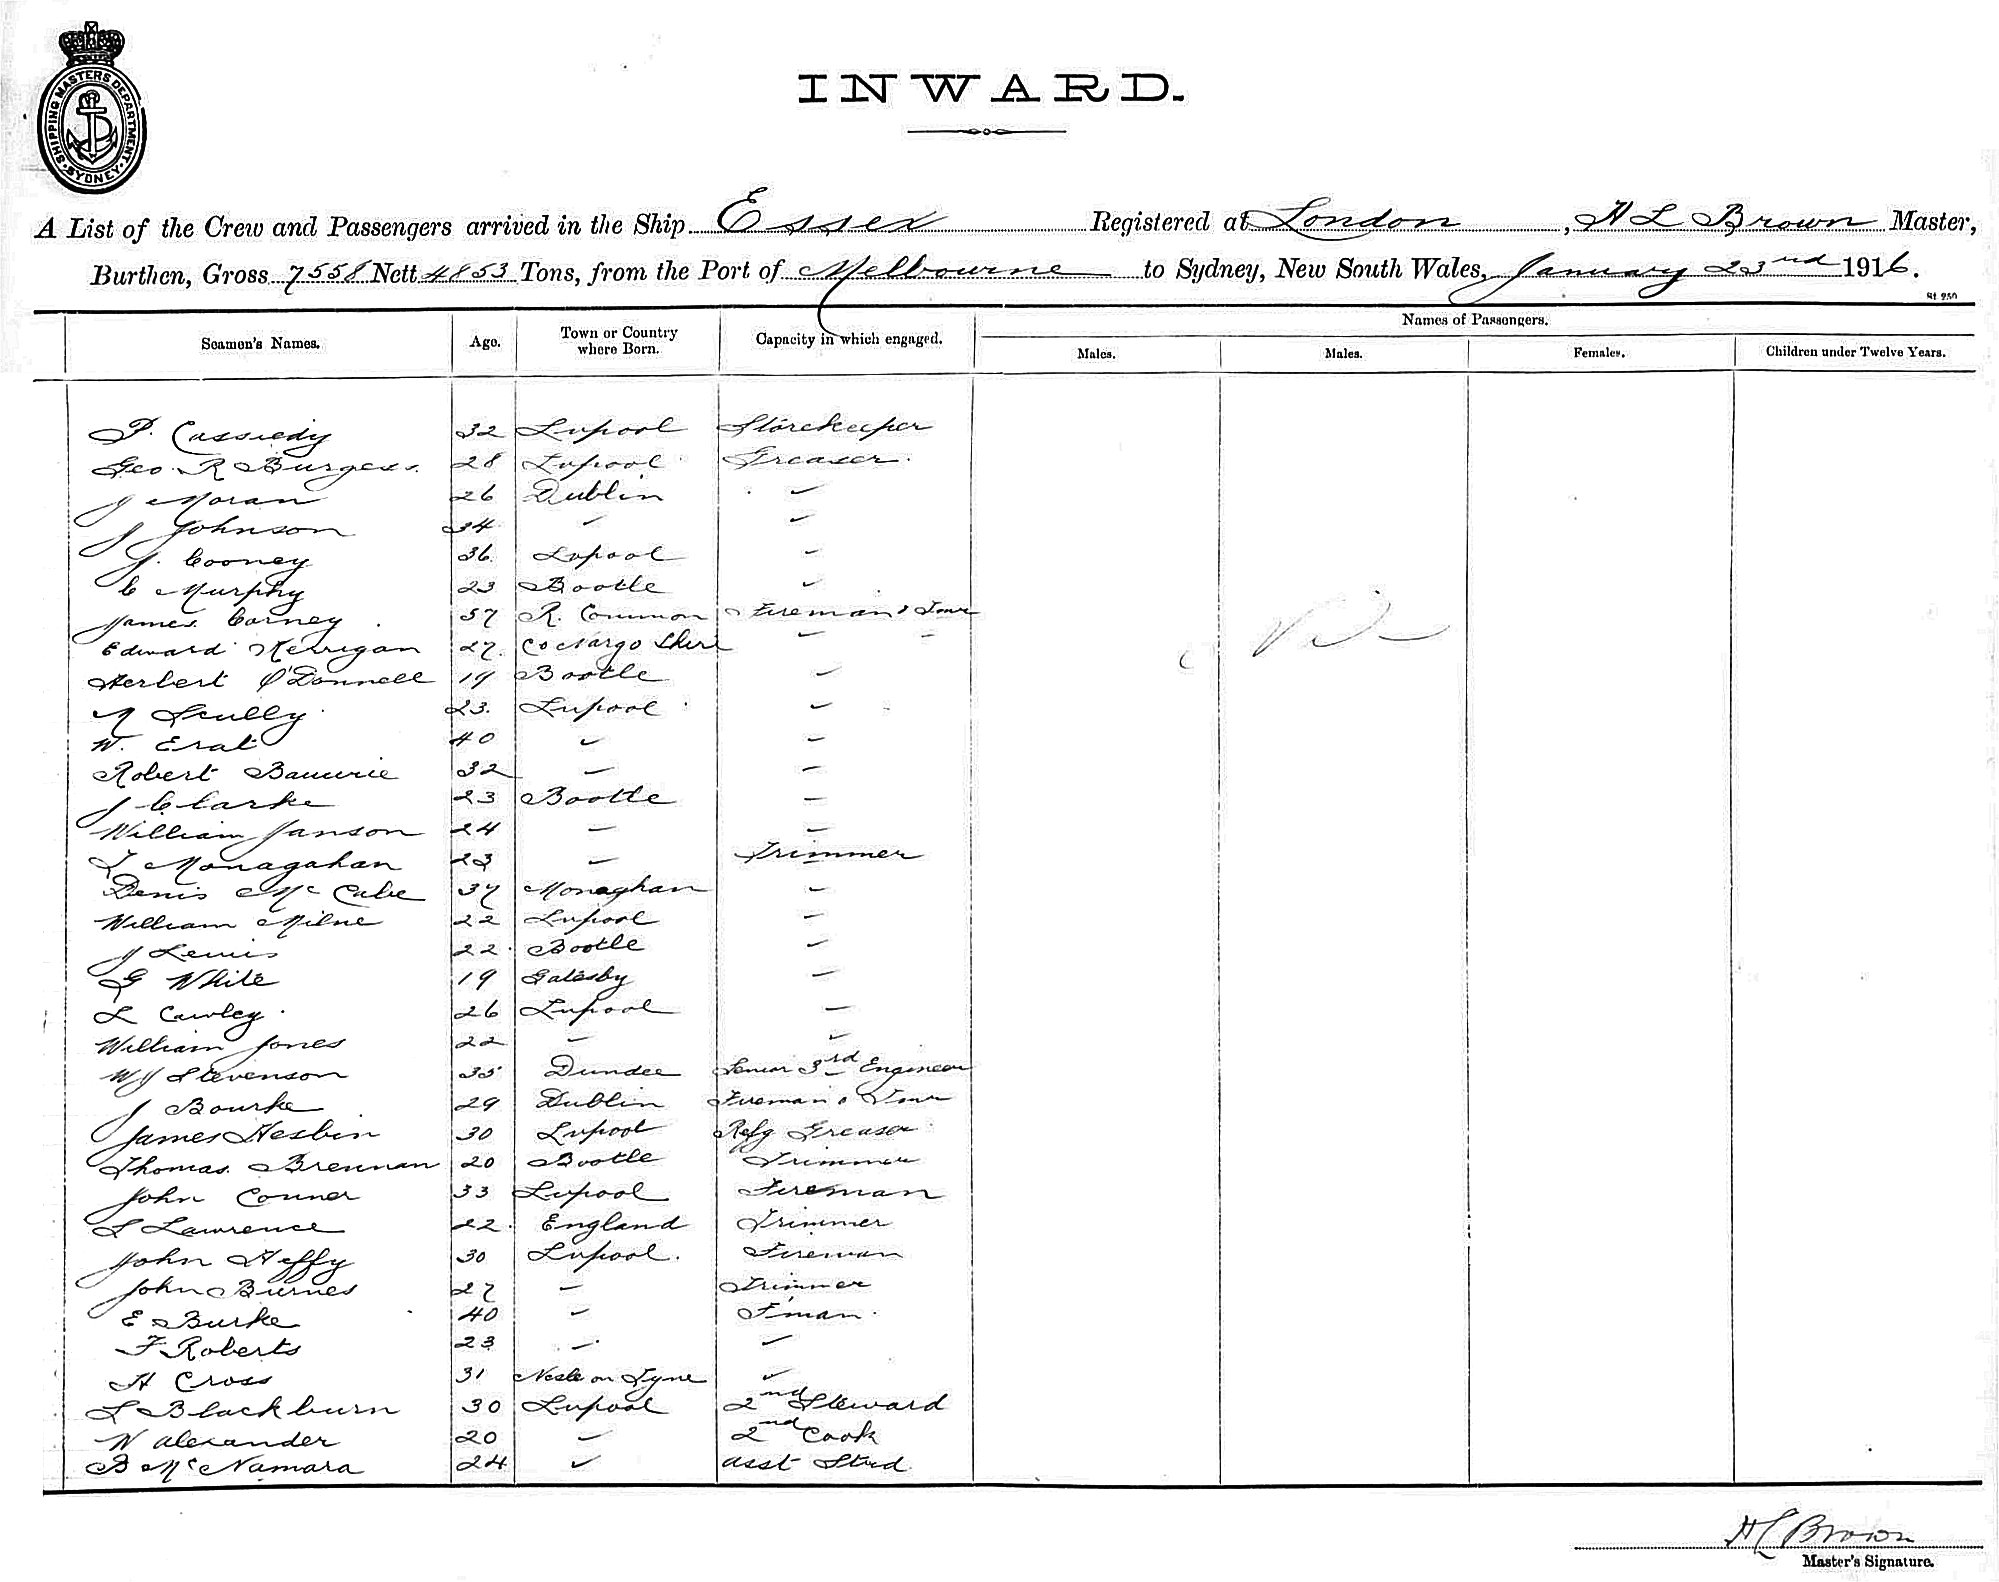 SHIPPING MASTERS DEPARTMENT. SYDNEY
INWARD.
A List of the Crew and Passengers arrived in the Ship Essex Registered at London, H L Brown Master,
Burthen, Gross 7558 Nett 4853 Tons, from the Port of Melbourne to Sydney, New South Wales, January 23rd 1916.
St 250
Names of Passengers.
Seamen's Names. Age. Town or Country where Born. Capacity in which engaged. Males. Males. Females. Children under Twelve Years.
P. Cassiedy 32 Lvpool Storekeeper
Geo R Burgess. 28 Lvpool Greaser.
J Moran 26 Dublin "
J Johnson 34 " "
J. Cooney 36 Lvpool "
C Murphy 23 Bootle "
James Corney 57 R. Common Fireman &
Nil
Edward Kerrigan 27. Co " "
Herbert O'Donnell 19 Bootle "
Scully 23. Lvpool "
W. Erat 40 " "
Robert 32 " "
J Clarke 23 Bootle "
William Janson 24 " "
T Monagahan 23 " Trimmer
Denis McCabe 37 Monaghan "
William Milne 22 Lvpool "
J Lewis 22 Bootle "
G White 19 Gatesby "
L Cawley 26 Lvpool "
William Jones 22 " "
W J Stevenson 35 Dundee Senior 3rd Engineer
J Bourke 29 Dublin Fireman &
James Hesbin 30 Lvpool Refg Greaser
Thomas Brennan 20 Bootle Trimmer
John Conner 33 Lvpool Fireman
L Lawrence 22. England Trimmer
John Heffy 30 Lvpool. Fireman
John Burnes 27 " Trimmer
E Burke 40 " F'man.
F Roberts 23 " "
H Cross 31 on Tyne "
L Blackburn 30 Lvpool 2nd Steward
W Alexander 20 " 2nd Cook
B McNamara 24 " Asst Stwd
H L Brown
Master's Signature.